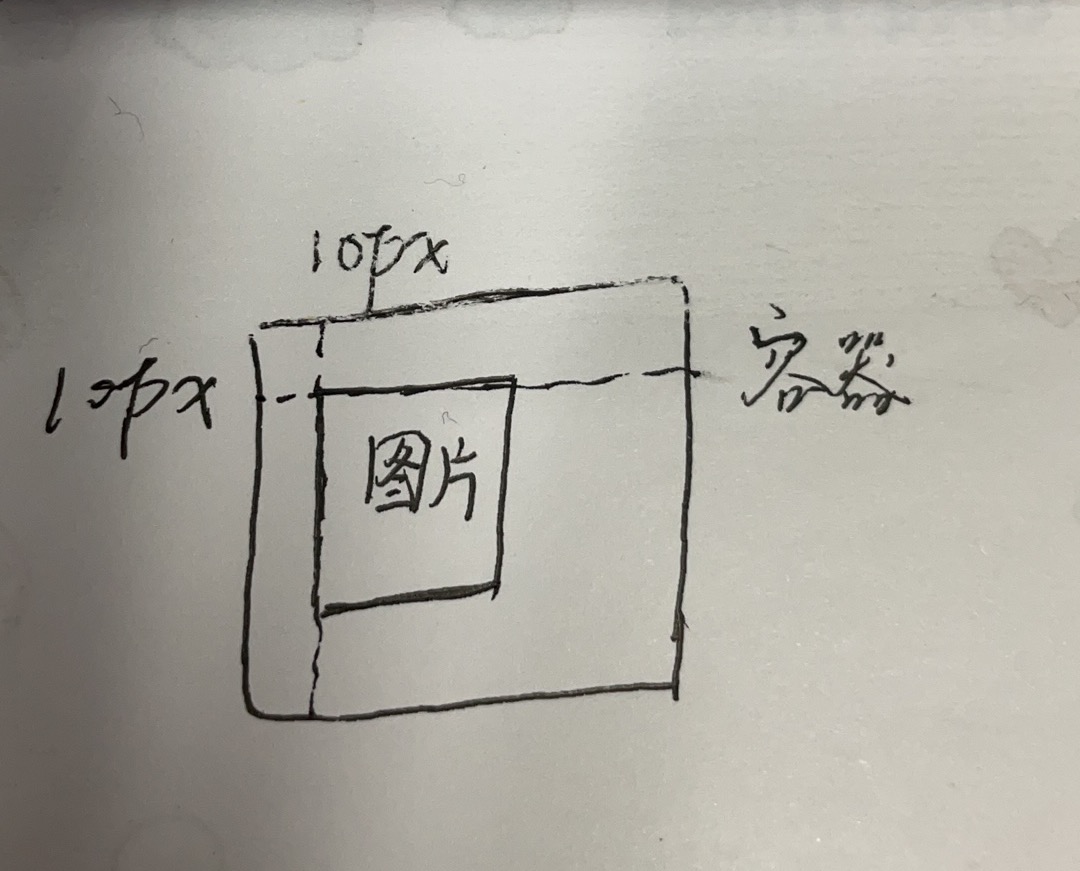 10px
10px
容器
图片